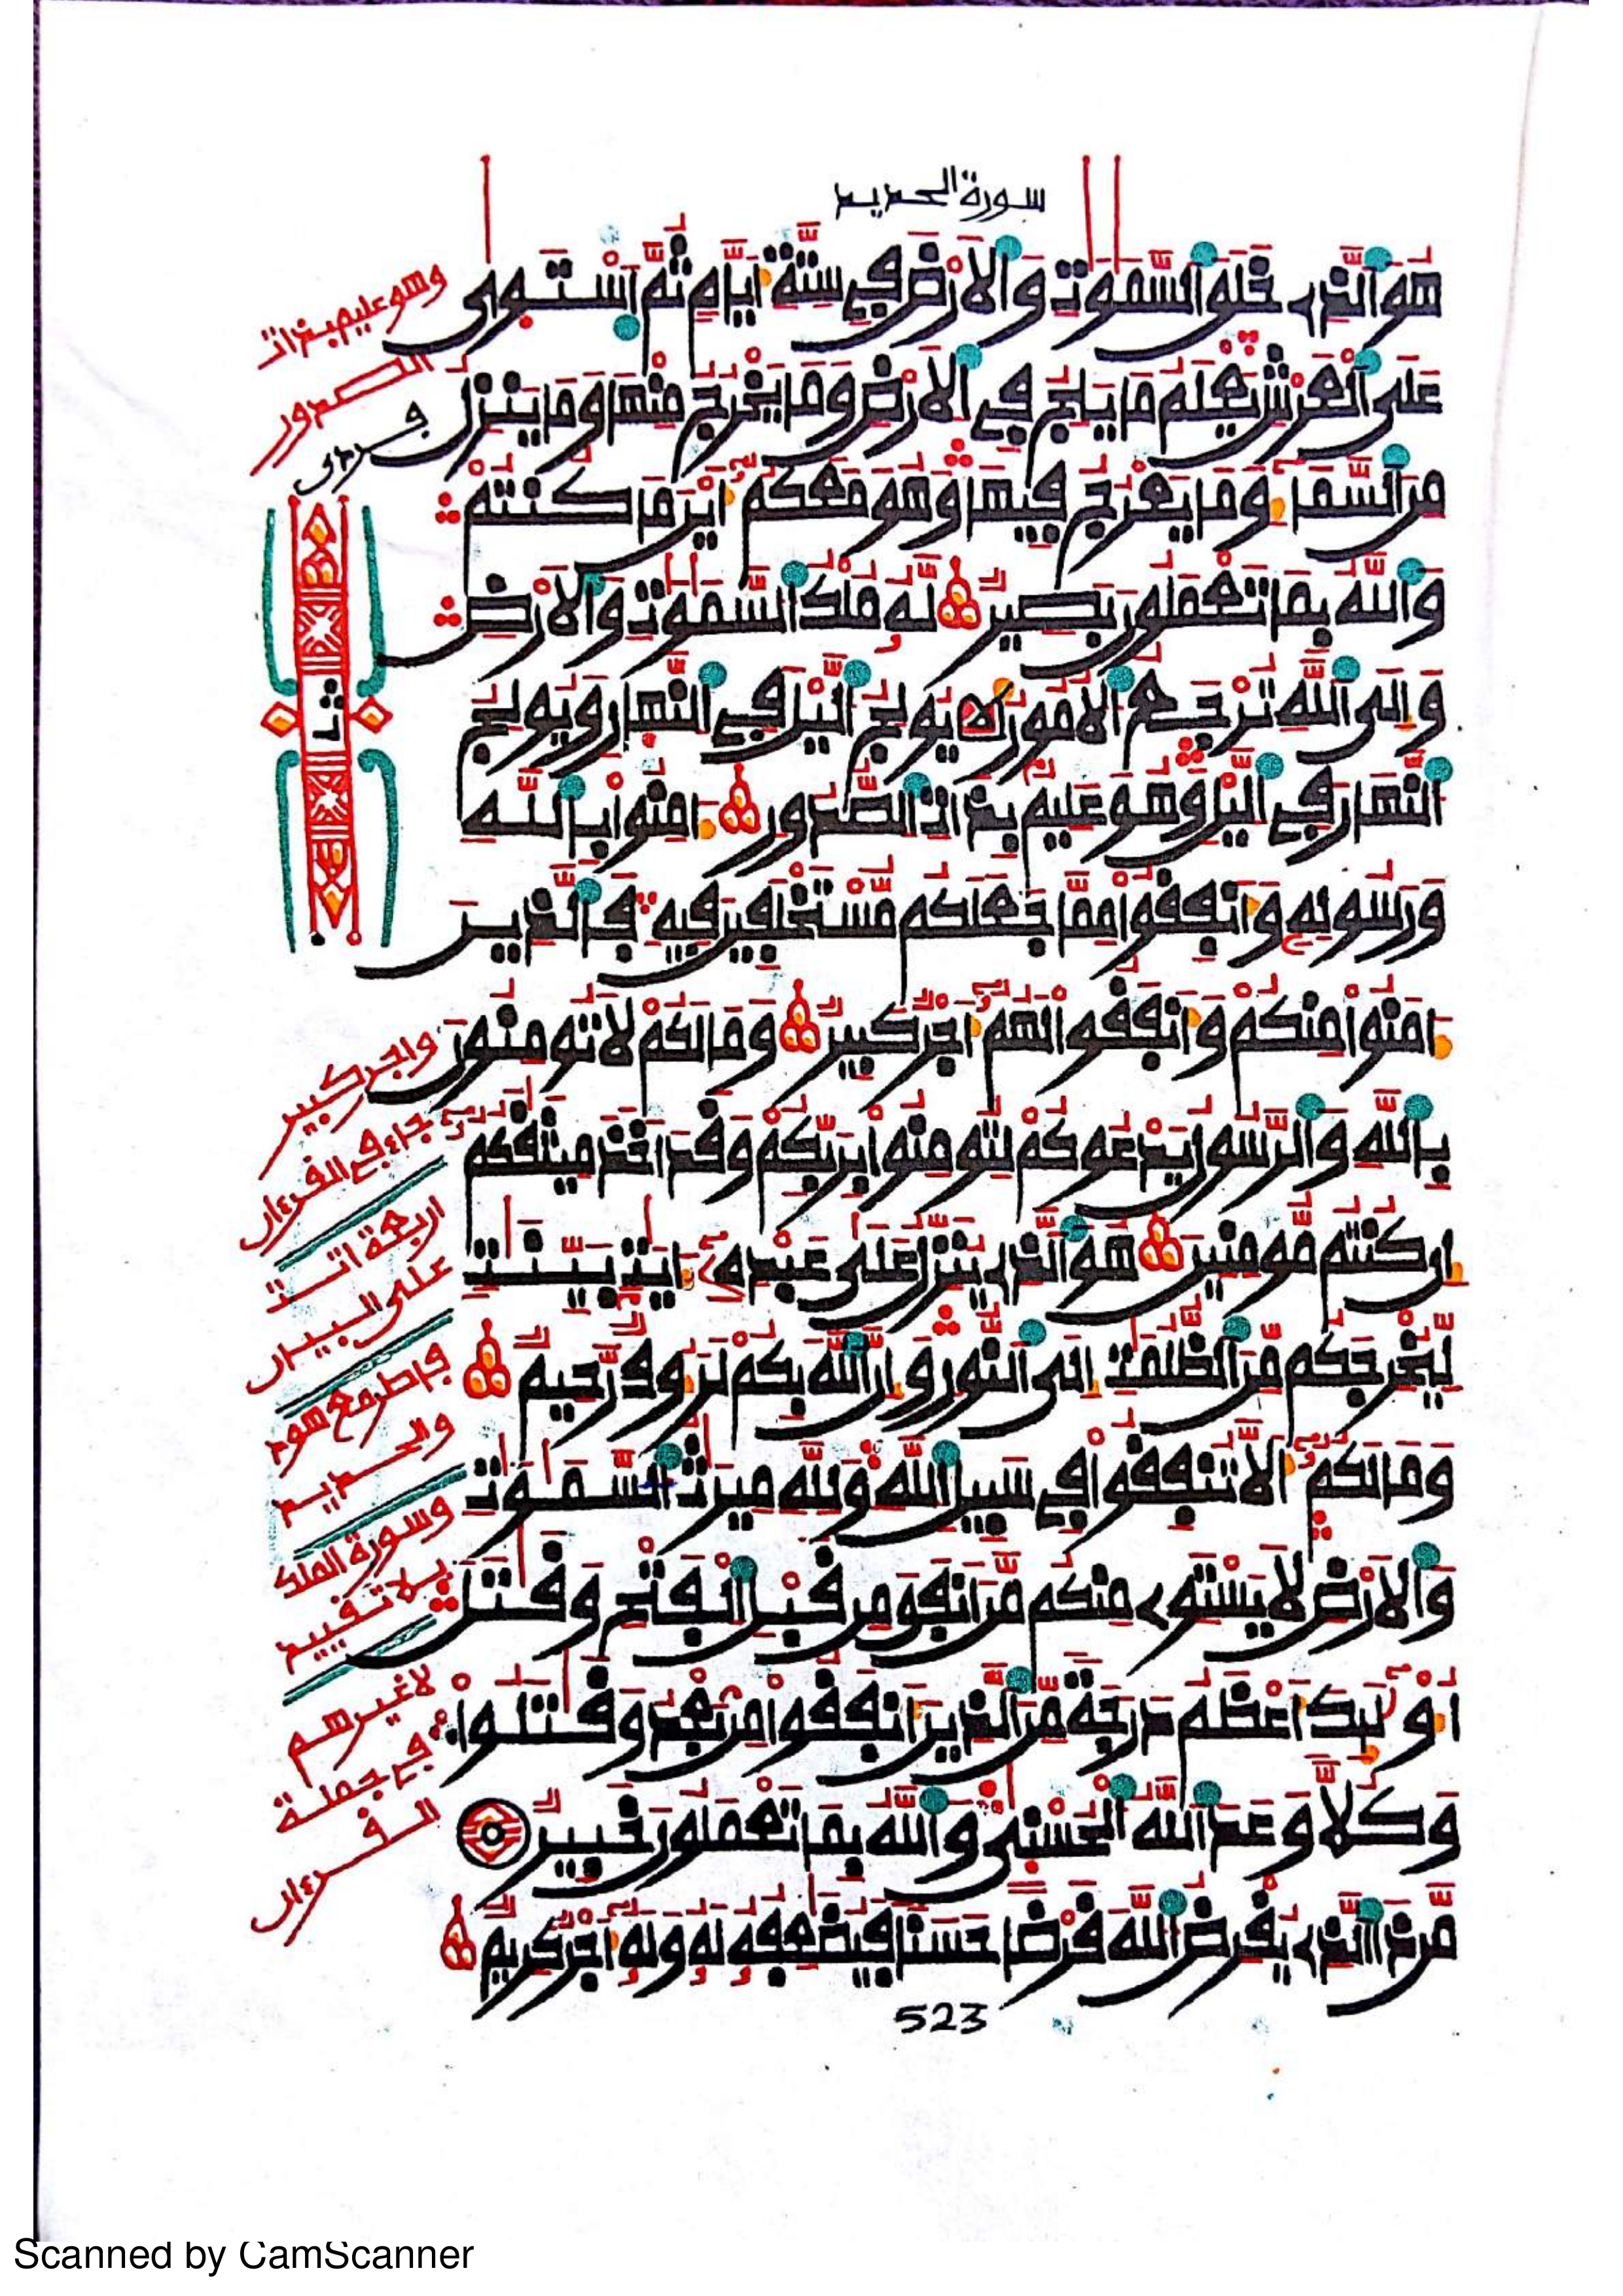 سورة الحديد
هُوَ ٱلَّذِے خَلَقَ ٱلسَّمَٰوَٰتِ وَٱلَارْضَ فِے سِتَّةِ أَيَّامٖ ثُمَّ ٱسْتَوۭيٰ
عَلَي ٱلْعَرْشِ يَعْلَمُ مَا يَلِجُ فِے ٱلَارْضِ وَمَا يَخْرُجُ مِنْهَا وَمَا يَنزِلُ
مِنَ ٱلسَّمَآءِ وَمَا يَعْرُجُ فِيهَا وَهُوَ مَعَكُمُۥٓ أَيْنَ مَا كُنتُمْ
وَٱللَّهُ بِمَا تَعْمَلُونَ بَصِيرٞ لَّهُۥ مُلْكُ ٱلسَّمَٰوَٰتِ وَٱلَارْضِ
وَإِلَي ٱللَّهِ تُرْجَعُ ٱلُامُورُ يُولِجُ ٱلَّيْلَ فِے ٱلنَّهَارِ وَيُولِجُ
ٱلنَّهَارَ فِے ٱلَّيْلِ وَهُوَ عَلِيمُۢ بِذَاتِ ٱلصُّدُورِ ءَامِنُواْ بِٱللَّهِ
وَرَسُولِهِۦ وَأَنفِقُواْ مِمَّا جَعَلَكُم مُّسْتَخْلَفِينَ فِيهِ فَٱلَّذِينَ
ءَامَنُواْ مِنكُمْ وَأَنفَقُواْ لَهُمُۥٓ أَجْرٞ كَبِيرٞ وَمَا لَكُمْ لَا تُومِنُونَ
بِٱللَّهِ وَٱلرَّسُولُ يَدْعُوكُمْ لِتُومِنُواْ بِرَبِّكُمْ وَقَدَ اَخَذَ مِيثَٰقَكُمُۥٓ
إِن كُنتُم مُّومِنِينَ هُوَ ٱلَّذِے يُنَزِّلُ عَلَيٰ عَبْدِهِۦٓ ءَايَٰتِۢ بَيِّنَٰتٖ
لِّيُخْرِجَكُم مِّنَ ٱلظُّلُمَٰتِ إِلَي ٱلنُّورِ وَإِنَّ ٱللَّهَ بِكُمْ لَرَءُوفٞ رَّحِيمٞ
وَمَا لَكُمُۥٓ أَلَّا تُنفِقُواْ فِے سَبِيلِ ٱللَّهِ وَلِلَّهِ مِيرَٰثُ ٱلسَّمَٰوَٰتِ
وَٱلَارْضِ لَا يَسْتَوِے مِنكُم مَّنَ اَنفَقَ مِن قَبْلِ ٱلْفَتْحِ وَقَٰتَلَ
أُوْلَٰٓئِكَ أَعْظَمُ دَرَجَةٗ مِّنَ ٱلَّذِينَ أَنفَقُواْ مِنۢ بَعْدُ وَقَٰتَلُواْ
وَكُلّٗا وَعَدَ ٱللَّهُ ٱلْحُسْنَيٰ وَٱللَّهُ بِمَا تَعْمَلُونَ خَبِيرٞ
مَّن ذَا ٱلَّذِے يُقْرِضُ ٱللَّهَ قَرْضًا حَسَنٗا فَيُضَٰعِفُهُۥ لَهُۥ وَلَهُۥٓ أَجْرٞ كَرِيمٞ
وهو عليم بذات
الصدور
ثمن
واجر كبير
جاء في القرءان
اربعة اتت
على البيان
فاطر مع هود
والحديد
وسورة الملك
بلا تقييد
لا غيرهم
في جملة
القرءان
523
Scanned by CamScanner